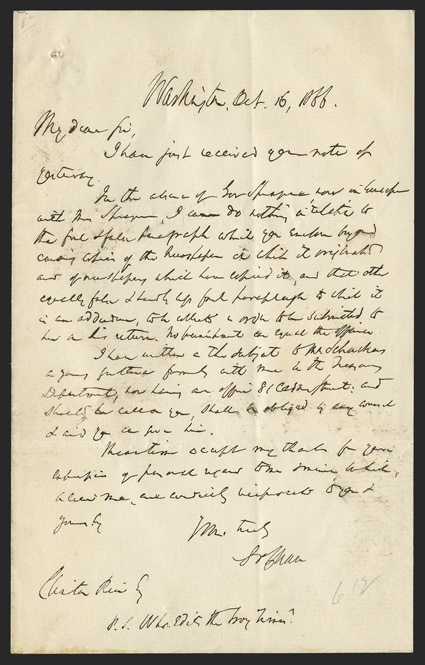 Washington, Oct. 16, 1866.
My dear Sir,
I have just received your note of
yesterday.
In the absence of Gov Sprague now in Europe
with Mrs Sprague, I can do nothing in relation to
the foul & false paragraph which you enclose beyond
causing copies of the Newspaper in which it originated
and of newspapers which have copied it, and that other
equally false & hardly less foul paragraph to which it
is an addendum, to be collected in order to be submitted to
her on his return. No punishment can equal the offence
I have written on the subject to Mr Schuckers
a young gentleman formerly with me in the Treasury
Department, now having an office 81 Cedar Street: and
should he call on you, shall be obliged by any counsel
& aid you can give him.
Meantime accept my thanks for your
expressions of personal regard to me & mine which,
believe me, are cordially reciprocated to you &
yours by
Yours truly
S P Chase
Clinton Rice Esq
P.S. Who edits the Troy Times?
612